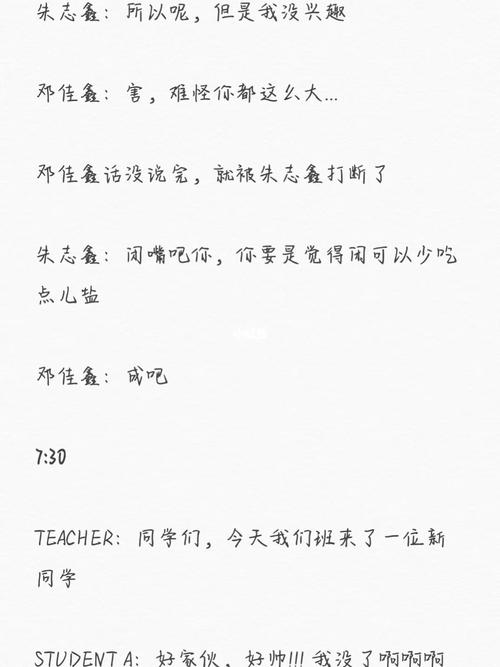 朱志鑫：所以呢，但是我没兴趣
邓佳鑫：害，难怪你都这么大...
邓佳鑫话没说完，就被朱志鑫打断了
朱志鑫：闭嘴吧你，你要是觉得闲可以少吃
点儿盐
小红书
邓佳鑫：成吧
7:30
TEACHER：同学们，今天我们班来了一位新
同学
STUDENT A：好家伙，好帅!!! 我没了啊啊啊